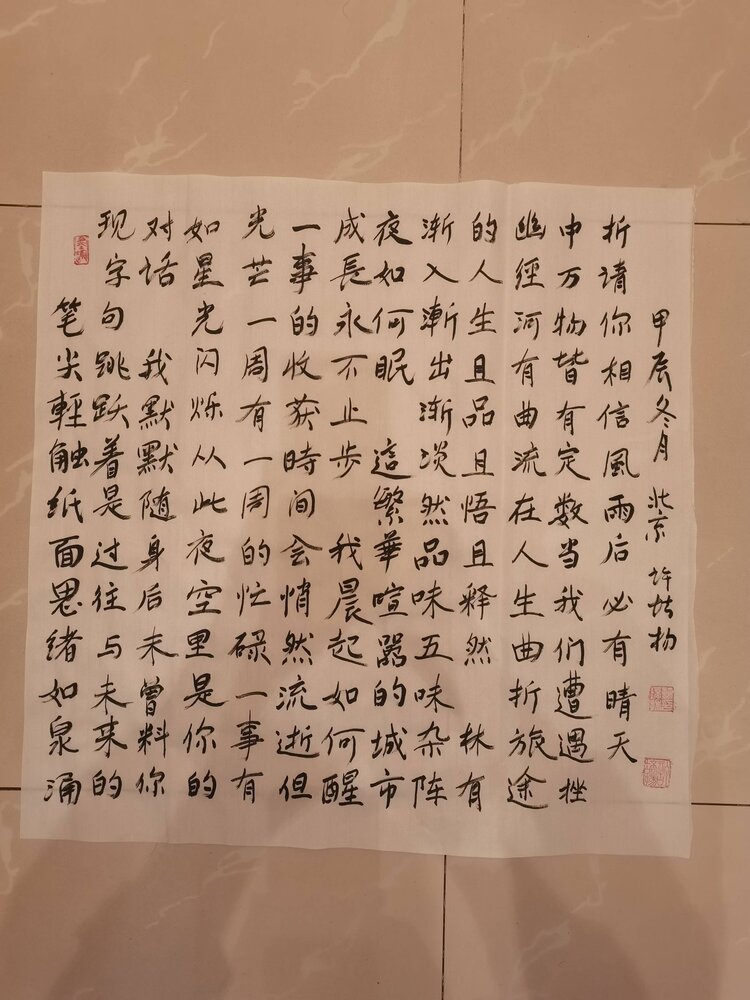 笔尖輕触纸面思绪如泉涌
现字句跳跃着是过往与未来的
对话 我默默随身后未曾料你
如星光闪烁从此夜空里是你的
光芒一周有一周的忙碌一事有
一事的收获時间会悄然流逝但
成長永不止步 我晨起如何醒
夜如何眠 這繁華喧嚣的城市
渐入漸出渐淡然品味五味杂陈
的人生且品且悟且释然 林有
幽經河有曲流在人生曲折旅途
中万物皆有定数当我们遭遇挫
折请你相信風雨后必有晴天
甲辰冬月 北京